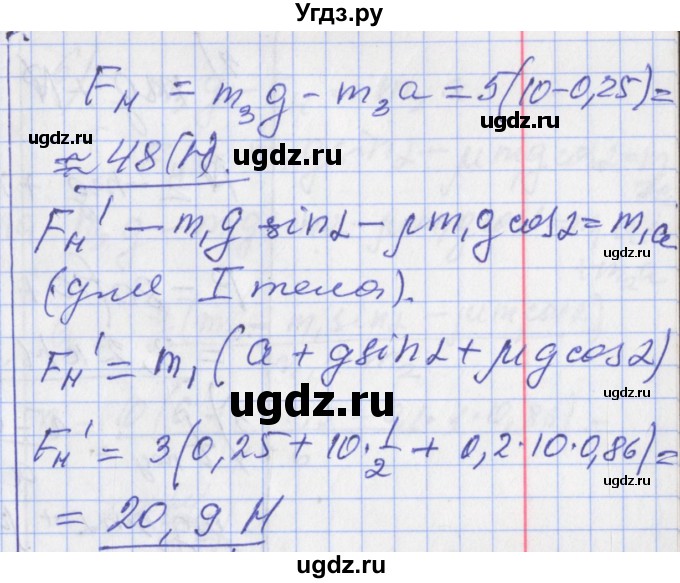 Угдз.ру
Fн = m₃g − m₃a = 5(10−0,25)=
≈ 48(Н).
ugdz.ru ugdz.ru ugdz.ru
Fн' − m₁g sinα − μm₁g cosα = m₁a
ugdz.ru
(для I тела).
Fн' = m₁(a + gsinα + μgcosα)
ugdz.ru ugdz.ru
Fн' = 3(0,25 + 10·1/2 + 0,2·10·0,86)=
= 20,9 Н
ugdz.ru ugdz.ru ugdz.ru